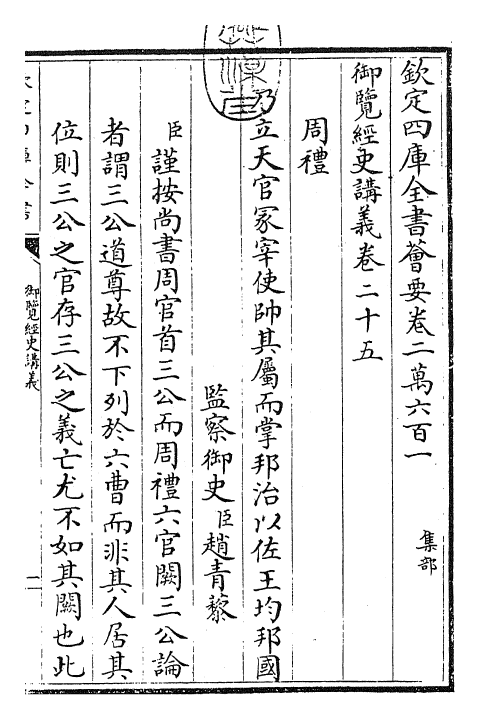 欽定四庫全書薈要卷二萬六百一 集部
御覽經史講義卷二十五
周禮
乃立天官冢宰使帥其屬而掌邦治以佐王均邦國
監察御史臣趙青藜
臣謹按尚書周官首三公而周禮六官闕三公論
者謂三公道尊故不下列於六曹而非其人居其
位則三公之官存三公之義亡尤不如其闕也此
御覽經史講義